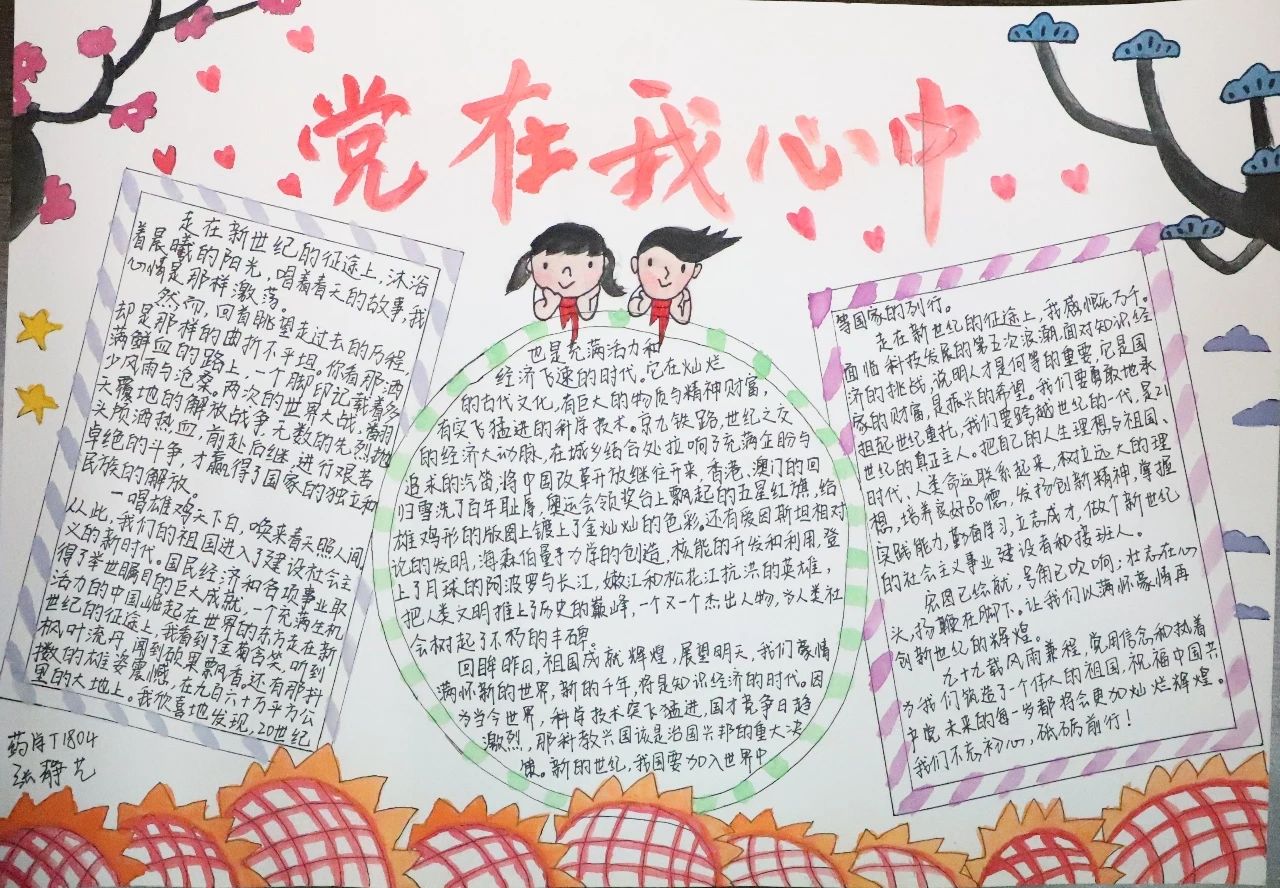 党在我心中
走在新世纪的征途上,沐浴
着晨曦的阳光,唱着春天的故事,我
心情是那样激荡。
然而,回首眺望走过去的历程
却是那样的曲折不平坦。你看那洒
满鲜血的路上,一个脚印记载着多
少风雨与沧桑。两次的世界大战,翻
天覆地的解放战争,无数的先烈抛
头颅洒热血,前赴后继,进行艰苦
卓绝的斗争,才赢得了国家的独立和
民族的解放。
一唱雄鸡天下白,唤来春天照人间,
从此,我们的祖国进入了建设社会主
义的新时代。国民经济和各项事业取
得了举世瞩目的巨大成就,一个充满生机
活力的中国崛起在世界的东方走在新
世纪的征途上,我看到了金菊含笑,听到
枫叶流丹,闻到硕果飘香。还有那抖
擞的雄姿震憾,在九百六十万平方公
里的大地上。我欣喜地发现,20世纪
也是充满活力和
经济飞速的时代。它在灿烂
的古代文化,有巨大的物质与精神财富,
有突飞猛进的科学技术。京九铁路,世纪之交
的经济大动脉,在城乡结合处拉响了充满企盼与
追求的汽笛,将中国改革开放继往开来,香港,澳门的回
归雪洗了百年耻辱,奥运会领奖台上飘起的五星红旗,给
雄鸡形的版图上镀上了金灿灿的色彩。还有爱因斯坦相对
论的发明,海森伯量子力学的创造,核能的开发和利用,登
上了月球的阿波罗与长江,嫩江和松花江抗洪的英雄,
把人类文明推上了历史的巅峰,一个又一个杰出人物,为人类社
会树起了不朽的丰碑。
回眸昨日,祖国成就辉煌,展望明天,我们豪情
满怀新的世界,新的千年,将是知识经济的时代。因
为当今世界,科学技术突飞猛进,国才竞争日趋
激烈,那科教兴国该是治国兴邦的重大决
策。新的世纪,我国要加入世界中
等国家的列行。
走在新世纪的征途上,我感慨万千。
面临科技发展的第五次浪潮,面对知识经
济的挑战,说明人才是何等的重要,它是国
家的财富,是振兴的希望。我们要勇敢地承
担起世纪重托,我们要跨越世纪的一代,是21
世纪的真正主人。把自己的人生理想与祖国、
时代、人类命运联系起来,树立远大的理
想,培养良好品德,发扬创新精神,掌握
实践能力,勤奋学习,立志成才,做个新世纪
的社会主义事业建设者和接班人。
宏图已绘就,号角已吹响;壮志在心
头,扬鞭在脚下。让我们以满怀豪情再
创新世纪的辉煌。
九十九载风雨兼程,党用信念和执着
为我们筑造了一个伟大的祖国,祝福中国共
产党未来的每一步都将会更加灿烂辉煌。
我们不忘初心,砥砺前行!
药学T1804
张静艺